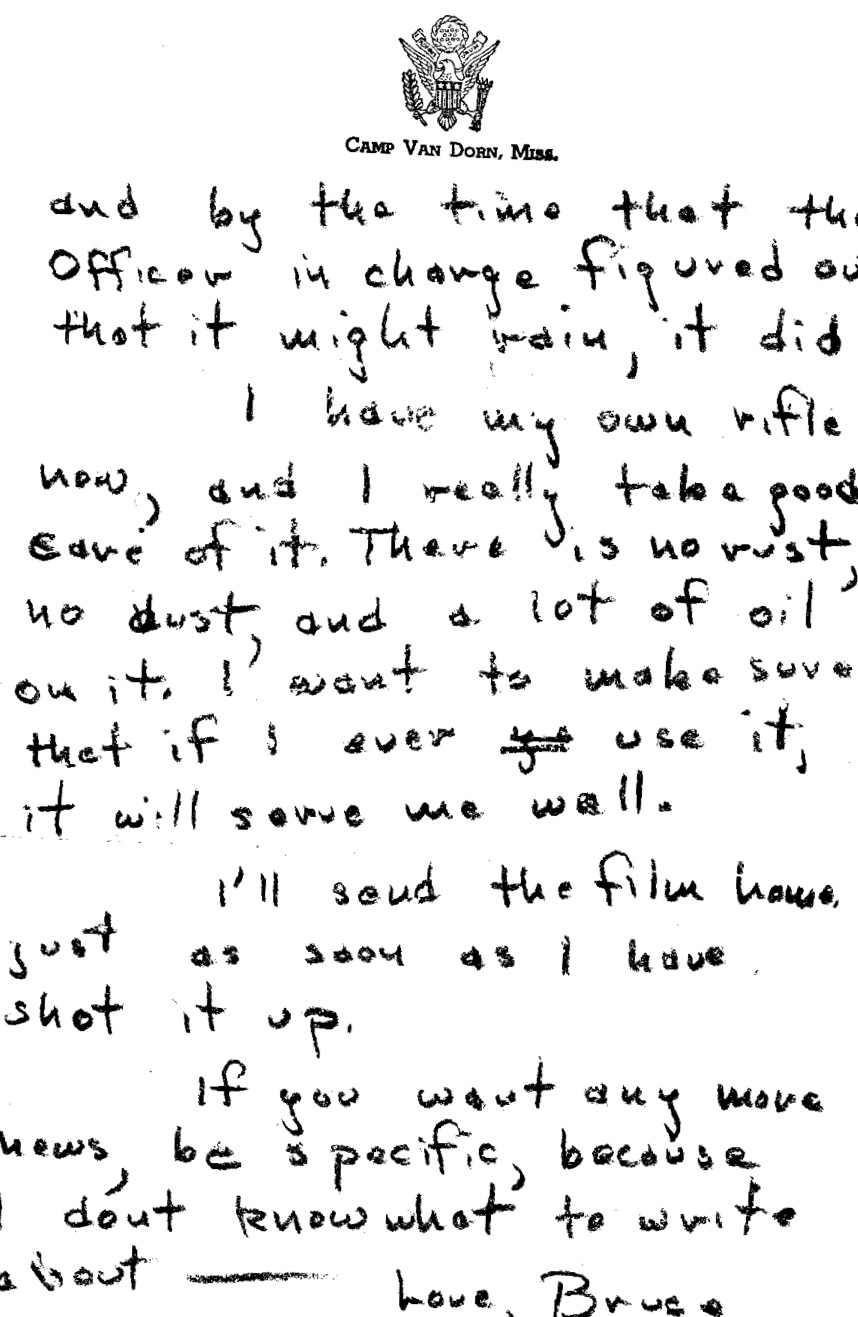 CAMP VAN DORN, MISS.
and by the time that the
Officer in charge figured ou
that it might rain, it did
I have my own rifle
now, and I really take good
care of it. There is no rust,
no dust, and a lot of oil
on it. I want to make sure
that if I ever ye use it,
it will serve me well.
I'll send the film home
just as soon as I have
shot it up.
If you want any more
news, be specific, because
I don't know what to write
about —
Love, Bruce